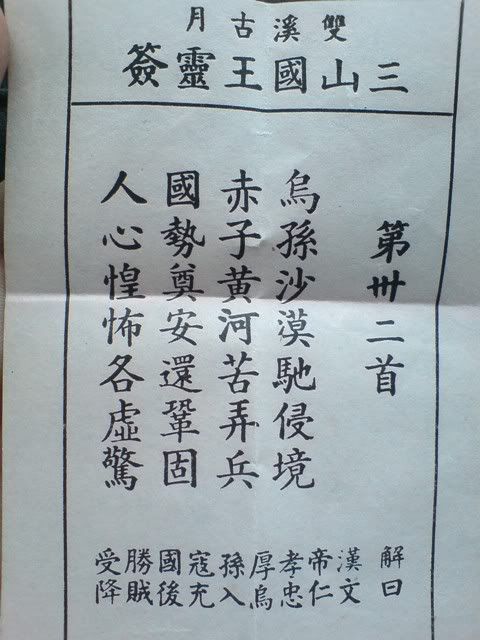 雙溪古月
三山國王靈簽
第卅二首
烏孫沙漠馳侵境
赤子黄河苦弄兵
國勢奠安還鞏固
人心惶怖各虛驚
解曰
漢文
帝仁
孝忠
厚烏
孫入
寇充
國後
勝賊
受降